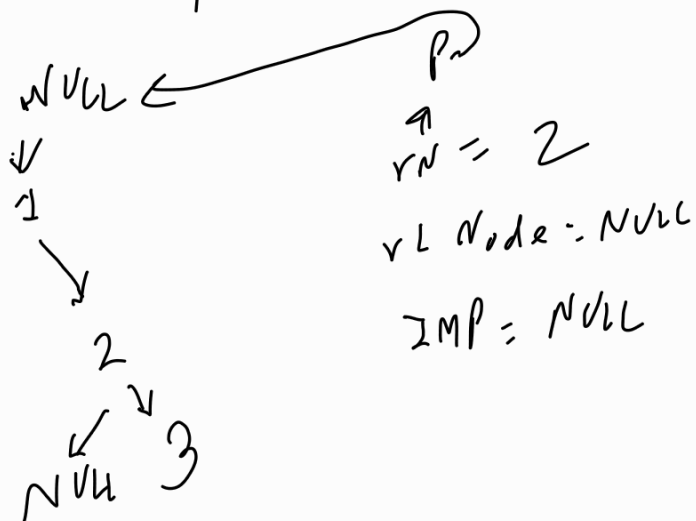 P
NULL
rN = 2
1
rL Node = NULL
IMP = NULL
2
NULL 3